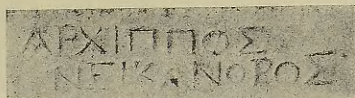 ΑΡΧΙΠΠΟΣ
ΝΕΙΚΑΝΟΡΟΣ